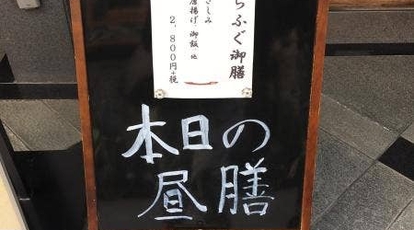 らふぐ御膳
さしみ
唐揚げ 御飯 他
2,800円+税
本日の
昼膳